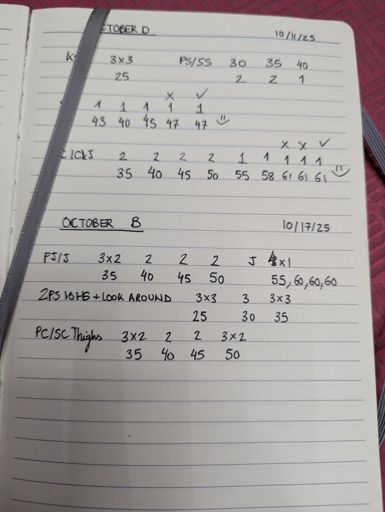 CTOBER D 10/11/25
3×3 PS/SS 30 35 40
25 2 2 1
x ✓
1 1 1 1 1
43 40 45 47 47
x x ✓
C/CKJ 2 2 2 2 1 1 1 1 1
35 40 45 50 55 58 61 61 61
OCTOBER B 10/17/25
PJ/J 3×2 2 2 2 J ×1
35 40 45 50 55, 60, 60, 60
+ LOOK AROUND 3×3 3 3×3
25 30 35
PC/SC Thighs 3×2 2 2 3×2
35 40 45 50